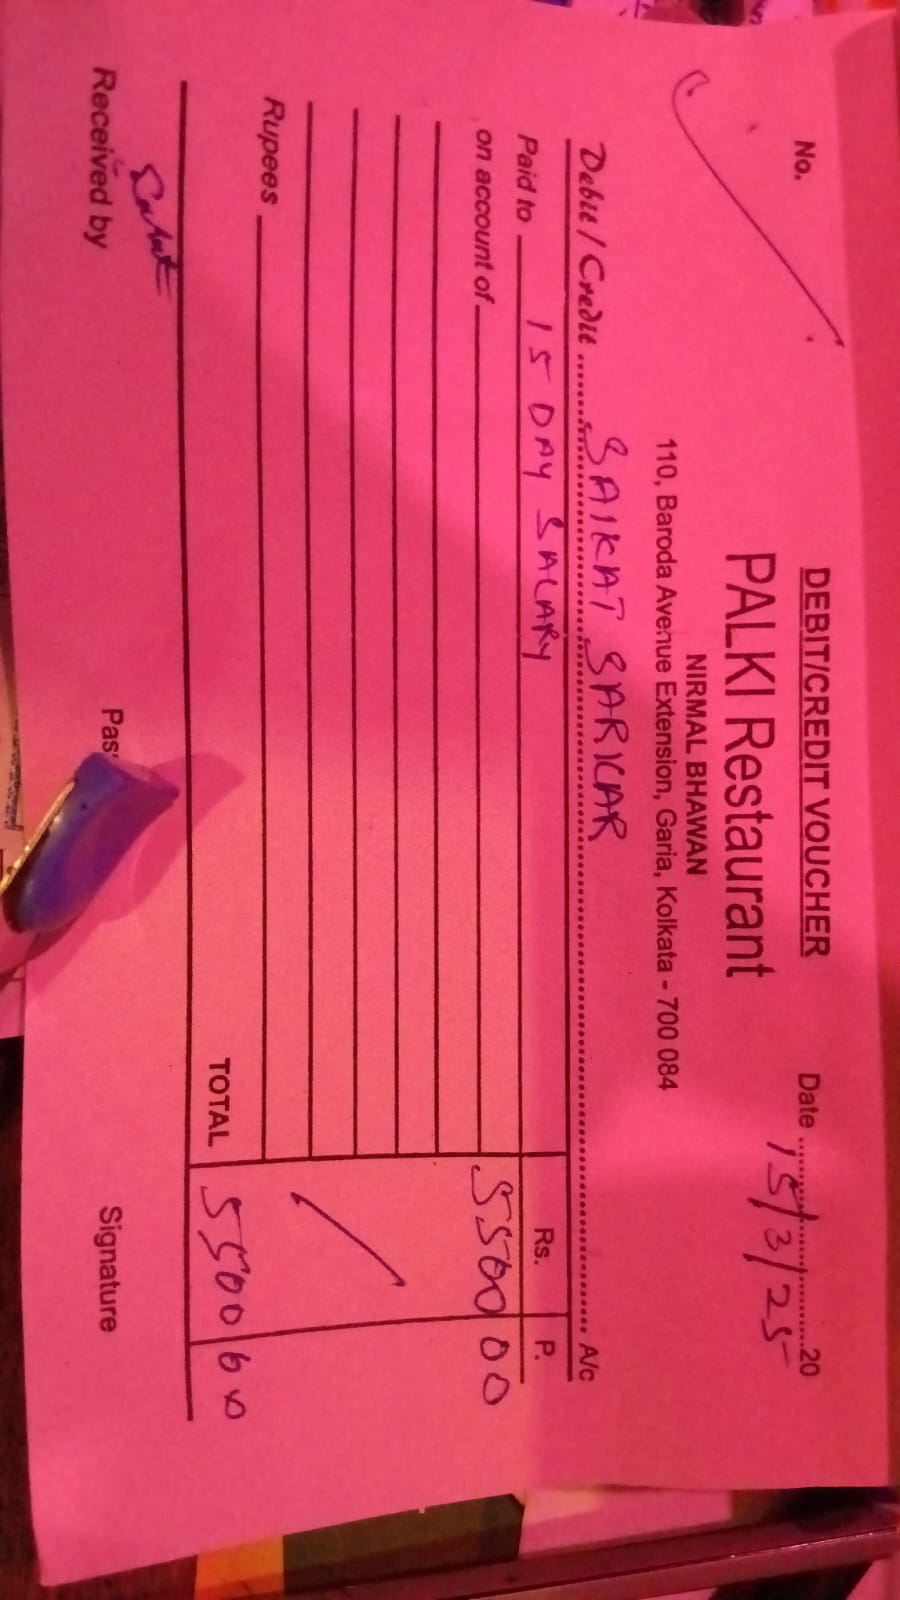 DEBIT/CREDIT VOUCHER
No. Date 15/3/25 20
PALKI Restaurant
NIRMAL BHAWAN
110, Baroda Avenue Extension, Garia, Kolkata - 700 084
Debit / Credit SAIKAT SARKAR A/c
Paid to 15 DAY SALARY Rs. P.
on account of 5500 00
Rupees
TOTAL 5500 00
Received by Signature